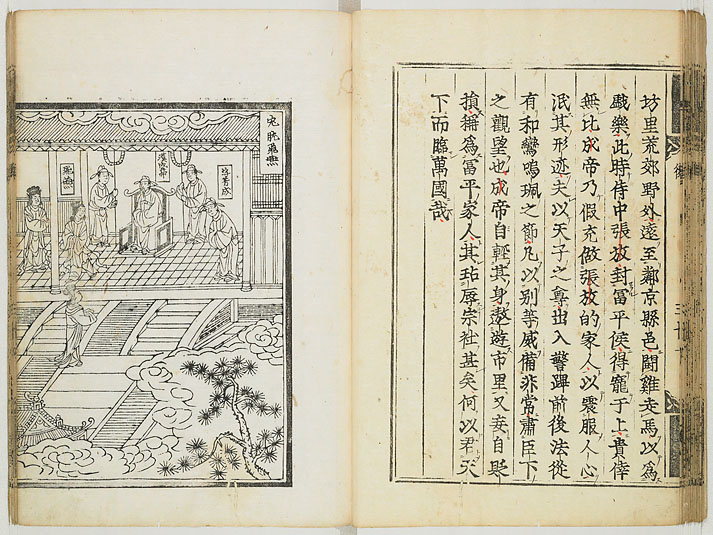 坊里荒郊野外遠至鄰京縣邑鬪雞走馬以爲
戲樂此時侍中張放封冨平侯得寵于上貴倖
無比成帝乃假充做張放的家人以震服人心
泯其形迹夫以天子之尊出入警蹕前後法從
有和鸞鳴珮之節凡以別等威備非常肅臣下
之觀望也成帝自輕其身遨遊市里又妄自貶
損稱爲冨平家人其玷辱宗社甚矣何以君天
下而臨萬國哉
宠昵飛燕
淖方成
漢成帝
飛燕